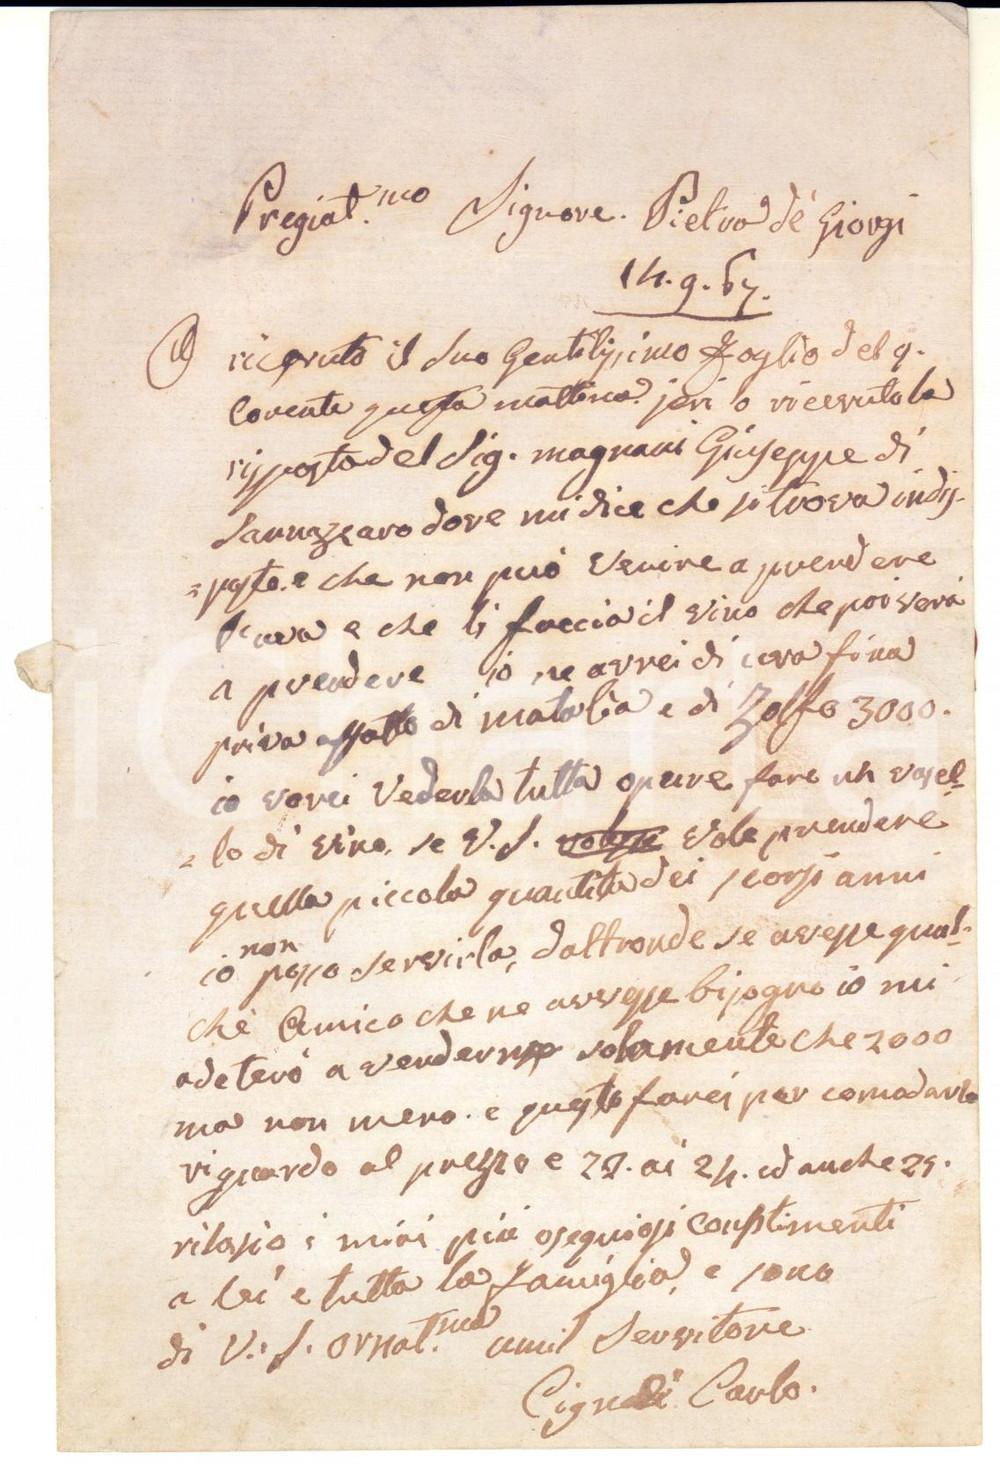 Pregiat.mo Signore. Pietro de Giorgi
14. 9. 67.
O ricevuto il suo Gentilissimo Foglio del 9.
Corente questa mattina. jeri o ricevuto la
rissposta del Sig. magnani Giuseppe di
Sannazzaro dove mi dice che si trova indis-
=posto. e che non può venire a prendere
l'uva e che li faccia il vino che poi verà
a prendere io ne avrei di uva fina
priva affatto di malatia e di Zolfo 3000.
io vorei vederla tutta opure fare un vasel-
=lo di vino, se V. S. vole prendere
quella piccola quantità dei scorsi anni
io non posso servirla, daltronde se avesse qual-
che Amico che ne avesse bisogno io mi
adeterò a venderne solamente che 2000
ma non meno. e questo farei per comodarlo
riguardo al prezzo e 22. ai 24. ed anche 25.
rilasio i miei più osequiosi complimenti
a lei e tutta la Famiglia, e sono
di V. S. Ornat.ma umil Servitore
Carlo.